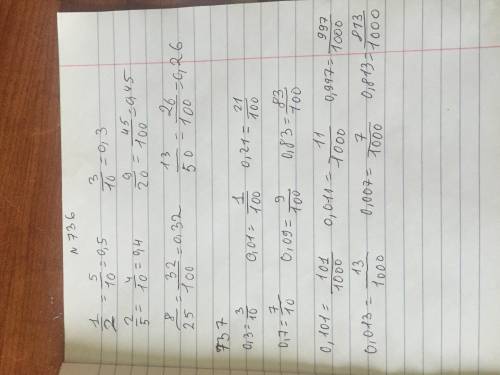 N 736
1/2 = 5/10 = 0,5 3/10 = 0,3
2/5 = 4/10 = 0,4 9/20 = 45/100 = 0,45
8/25 = 32/100 = 0,32 13/50 = 26/100 = 0,26
737
0,3 = 3/10 0,01 = 1/100 0,21 = 21/100
0,7 = 7/10 0,09 = 9/100 0,83 = 83/100
0,101 = 101/1000 0,011 = 11/1000 0,997 = 997/1000
0,013 = 13/1000 0,007 = 7/1000 0,813 = 813/1000